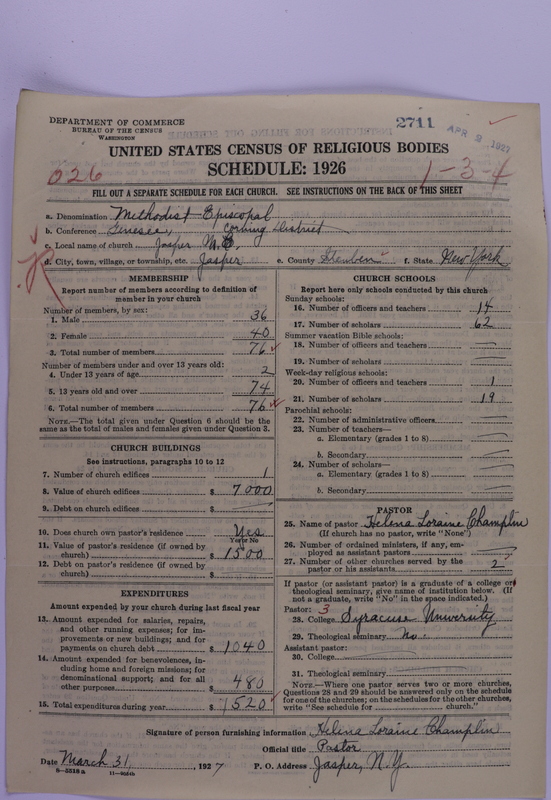 DEPARTMENT OF COMMERCE
BUREAU OF THE CENSUS
WASHINGTON
2711
APR 2 1927
UNITED STATES CENSUS OF RELIGIOUS BODIES
SCHEDULE: 1926
026
1-3-4
FILL OUT A SEPARATE SCHEDULE FOR EACH CHURCH. SEE INSTRUCTIONS ON THE BACK OF THIS SHEET
a. Denomination Methodist Episcopal
b. Conference Genesee, Corning District
c. Local name of church Jasper M.E.
d. City, town, village, or township, etc. Jasper e. County Steuben f. State New York
MEMBERSHIP
Report number of members according to definition of
member in your church
Number of members, by sex:
1. Male 36
2. Female 40
3. Total number of members 76
Number of members under and over 13 years old:
4. Under 13 years of age 2
5. 13 years old and over 74
6. Total number of members 76
NOTE.—The total given under Question 6 should be
the same as the total of males and females given under Question 3.
CHURCH BUILDINGS
See instructions, paragraphs 10 to 12
7. Number of church edifices 1
8. Value of church edifices $ 7000
9. Debt on church edifices $
10. Does church own pastor's residence Yes
Yes or No
11. Value of pastor's residence (if owned by
church) $ 1500
12. Debt on pastor's residence (if owned by
church) $
EXPENDITURES
Amount expended by your church during last fiscal year
13. Amount expended for salaries, repairs,
and other running expenses; for im-
provements or new buildings; and for
payments on church debt $ 1040
14. Amount expended for benevolences, in-
cluding home and foreign missions; for
denominational support; and for all
other purposes $ 480
15. Total expenditures during year $ 1520
CHURCH SCHOOLS
Report here only schools conducted by this church
Sunday schools:
16. Number of officers and teachers 14
17. Number of scholars 62
Summer vacation Bible schools:
18. Number of officers and teachers
19. Number of scholars
Week-day religious schools:
20. Number of officers and teachers 1
21. Number of scholars 19
Parochial schools:
22. Number of administrative officers
23. Number of teachers—
a. Elementary (grades 1 to 8)
b. Secondary
24. Number of scholars—
a. Elementary (grades 1 to 8)
b. Secondary
PASTOR
25. Name of pastor Helena Loraine Champlin
(If church has no pastor, write "None")
26. Number of ordained ministers, if any, em-
ployed as assistant pastors
27. Number of other churches served by the
pastor or his assistants 2
If pastor (or assistant pastor) is a graduate of a college or
theological seminary, give name of institution below. (If
not a graduate, write "No" in the space indicated.)
Pastor: 3
28. College Syracuse University
29. Theological seminary No.
Assistant pastor:
30. College
31. Theological seminary
NOTE.—Where one pastor serves two or more churches,
Questions 28 and 29 should be answered only on the schedule
for one of the churches; on the schedules for the other churches,
write "See schedule for church."
Signature of person furnishing information Helena Loraine Champlin
Official title Pastor
Date March 31, 1927 P. O. Address Jasper, N.Y.
8—5518 a 11—9054b